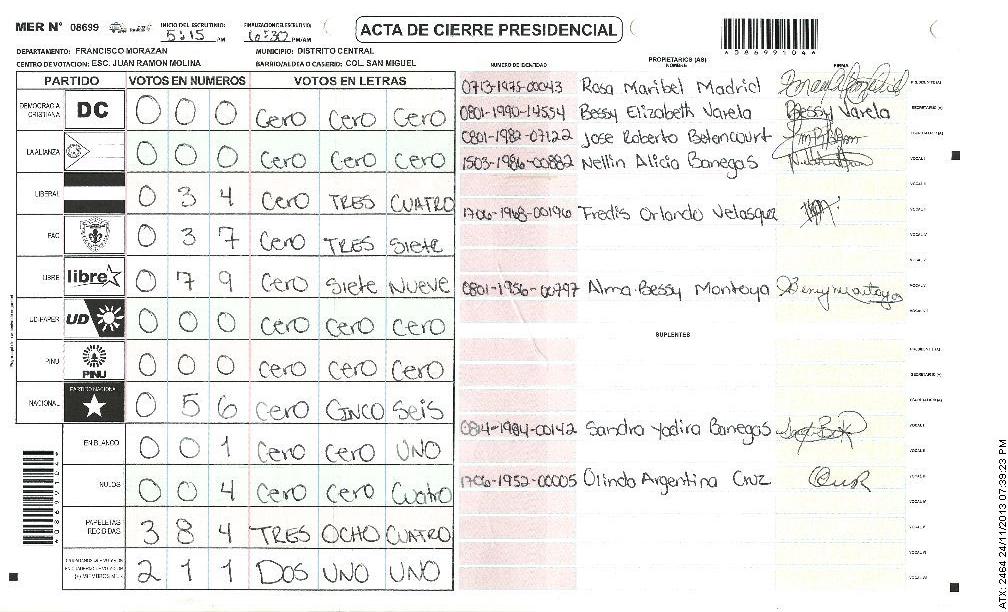 MER Nº 08699 INICIO DEL ESCRUTINIO: 5:15 PM FINALIZACION DEL ESCRUTINIO: 6:30 PM/AM
ACTA DE CIERRE PRESIDENCIAL
*086991044*
DEPARTAMENTO: FRANCISCO MORAZAN MUNICIPIO: DISTRITO CENTRAL
CENTRO DE VOTACION: ESC. JUAN RAMON MOLINA BARRIO/ALDEA O CASERIO: COL. SAN MIGUEL
PARTIDO VOTOS EN NUMEROS VOTOS EN LETRAS
DEMOCRACIA CRISTIANA DC 0 0 0 Cero Cero Cero
LA ALIANZA 0 0 0 Cero Cero Cero
LIBERAL 0 3 4 Cero TRES CUATRO
PAC 0 3 7 Cero TRES Siete
LIBRE libre 0 7 9 Cero Siete Nueve
UD-FAPER UD 0 0 0 Cero Cero Cero
PINU PINU 0 0 0 Cero Cero Cero
NACIONAL PARTIDO NACIONAL 0 5 6 Cero CINCO Seis
EN BLANCO 0 0 1 Cero Cero UNO
NULOS 0 0 4 Cero Cero Cuatro
PAPELETAS RECIBIDAS 3 8 4 TRES OCHO CUATRO
2 1 1 DOS UNO UNO
NUMERO DE IDENTIDAD PROPIETARIOS (AS) NOMBRE FIRMA
0713-1975-00043 Rosa Maribel Madrid
0801-1990-14554 Bessy Elizabeth Varela Bessy Varela
0801-1982-07122 Jose Roberto Betancourt
1503-1986-00882 Nellin Alicia Banegas
1706-1968-00196 Fredis Orlando Velasquez
0801-1956-00797 Alma Bessy Montoya
SUPLENTES
0814-1984-00142 Sandra Yadira Banegas
1706-1952-00005 Olinda Argentina Cruz
ATX: 2464 24/11/2013 07:39:23 PM